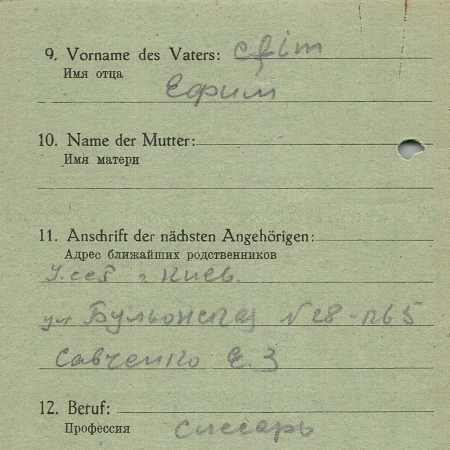 9. Vorname des Vaters: Efim
Имя отца
Ефим
10. Name der Mutter:
Имя матери
11. Anschrift der nächsten Angehörigen:
Адрес ближайших родственников
г. Киев.
ул Бульонская №28-
Савченко Е. З
12. Beruf:
Профессия слесарь